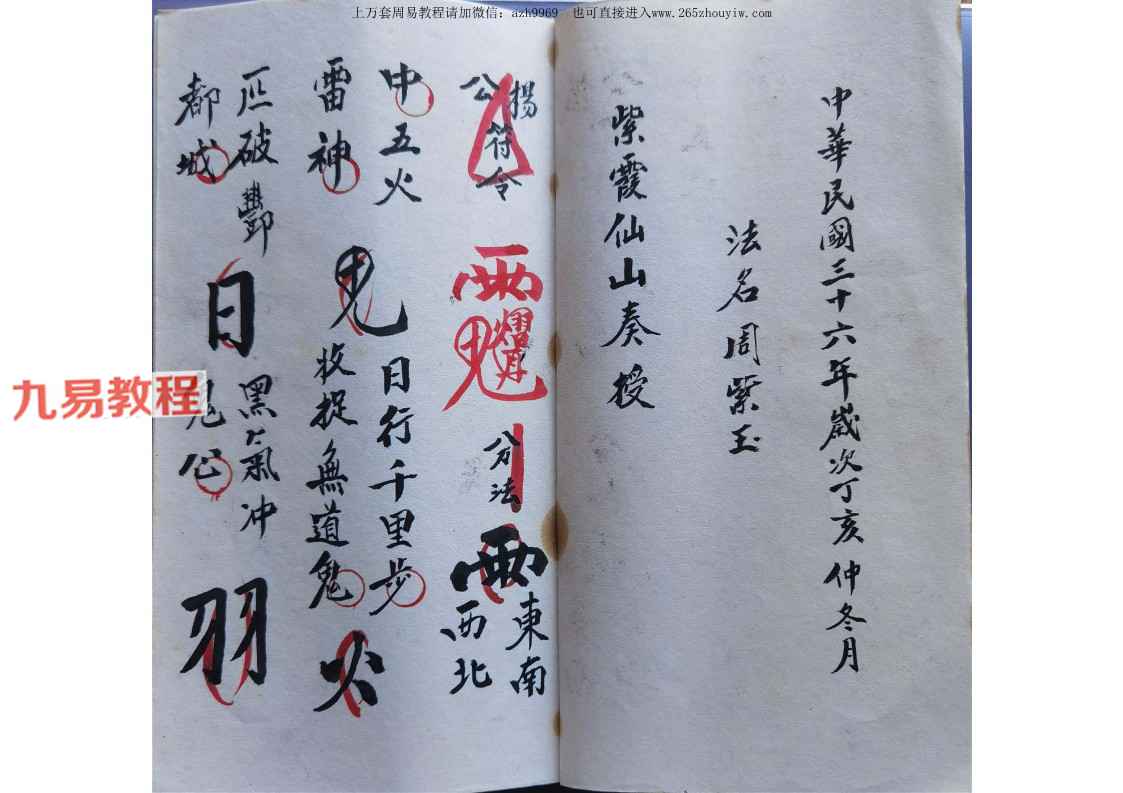 上万套周易教程请加微信：azh9969 也可直接进入www.265zhouyiw.com
中華民國三十六年歲次丁亥仲冬月
法名周紫玉
紫霞仙山奏授
楊公符令
分法
東南西北
中五火
雷神
日行千里步
收捉無道鬼
火
破酆
都城
日
黑氣冲
羽
九易教程